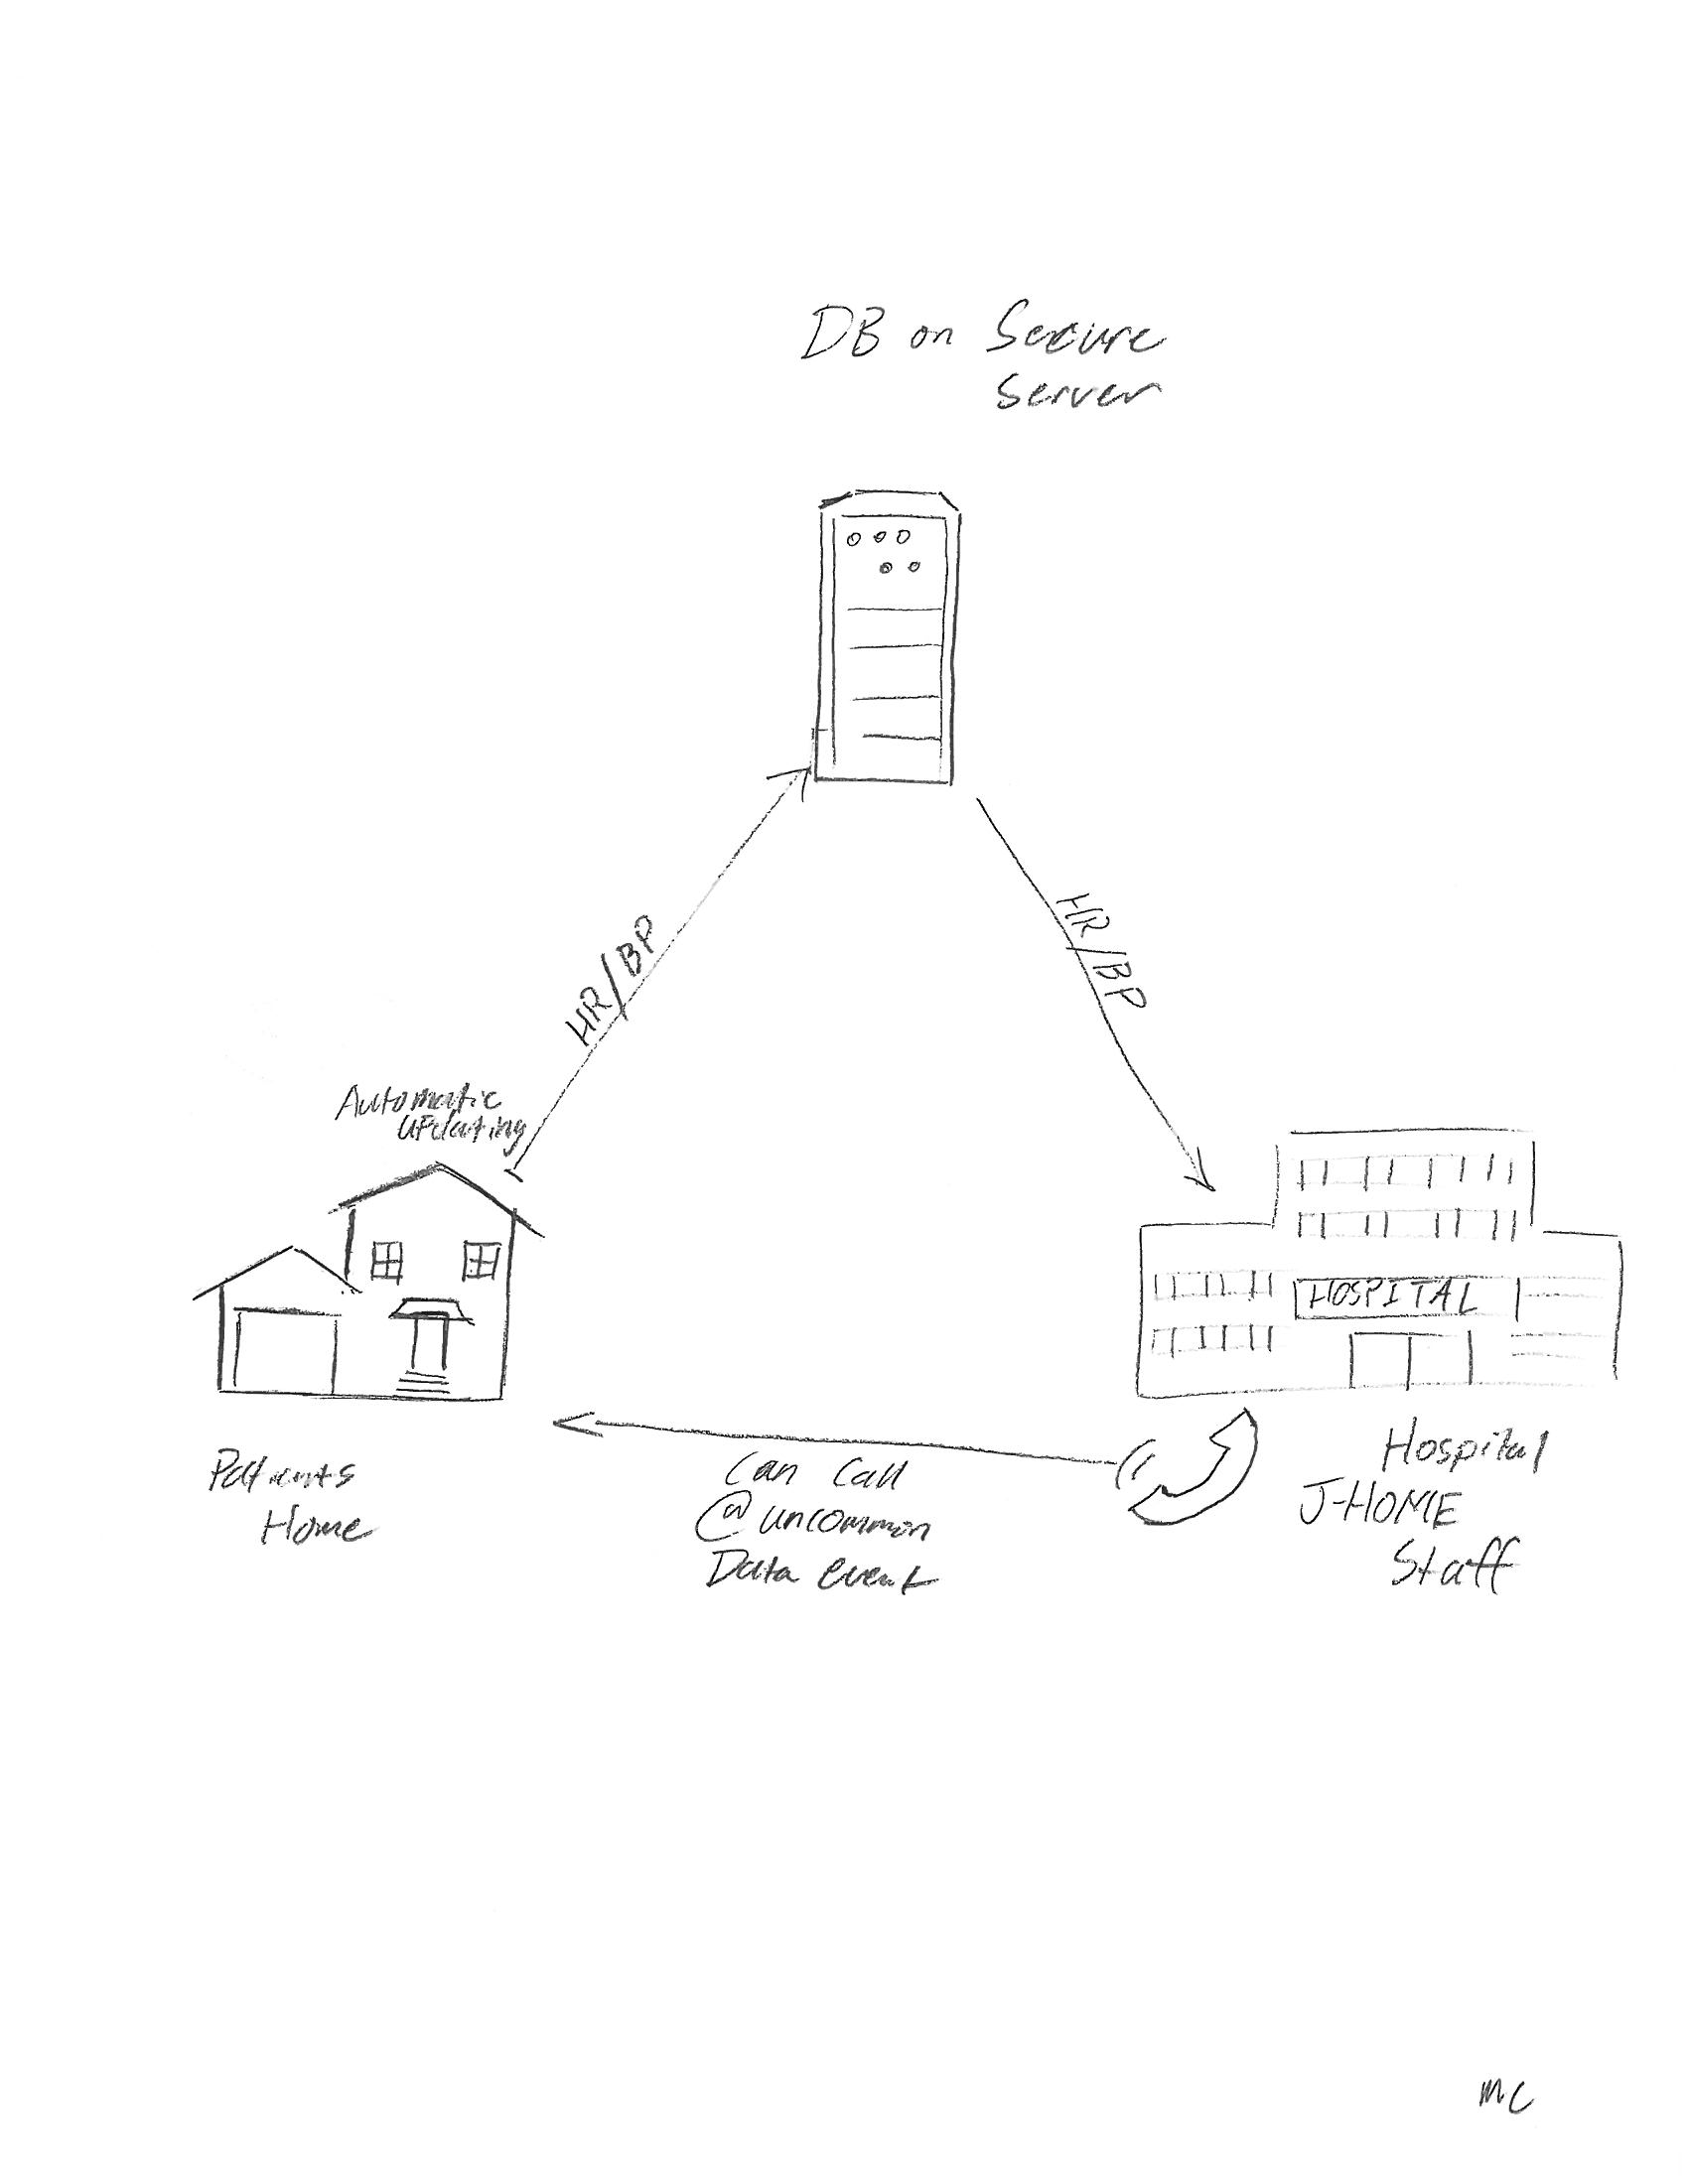 DB on Secure
Server
HR/BP
HR/BP
Automatic
UPdating
HOSPITAL
Patients
Home
Can Call
@ uncommon
Data event
Hospital
J-HOME
Staff
MC